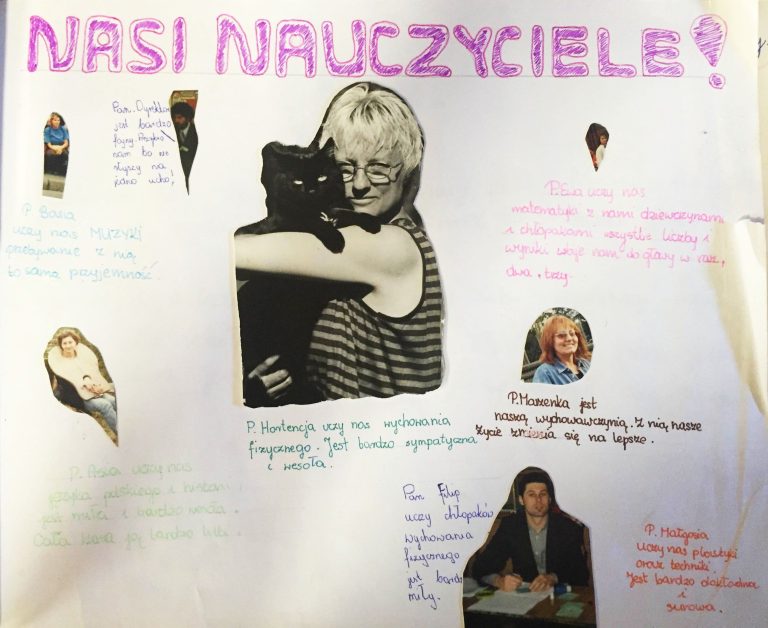 NASI NAUCZYCIELE!
Pan Dyrektor
jest bardzo
fajny.
nam to nie
słyszy na
jedno ucho!
P. Basia
uczy nas MUZYKI
przebywanie z nią
to sama przyjemność
P. Ewa uczy nas
matematyki z nami dziewczynami
i chłopakami wszystkie liczby i
wyniki wbije nam do głowy w raz,
dwa, trzy.
P. Hortencja uczy nas wychowania
fizycznego. Jest bardzo sympatyczna
i wesoła.
P. Marzenka jest
naszą wychowawczynią. Z nią nasze
życie zmienia się na lepsze.
P. Asia uczy nas
języka polskiego i historii
jest miła i bardzo wesoła.
Cała klasa ją bardzo lubi.
Pan Filip
uczy chłopaków
wychowania
fizycznego
jest bardzo
miły.
P. Małgosia
uczy nas plastyki
oraz techniki.
Jest bardzo dokładna
i
surowa.